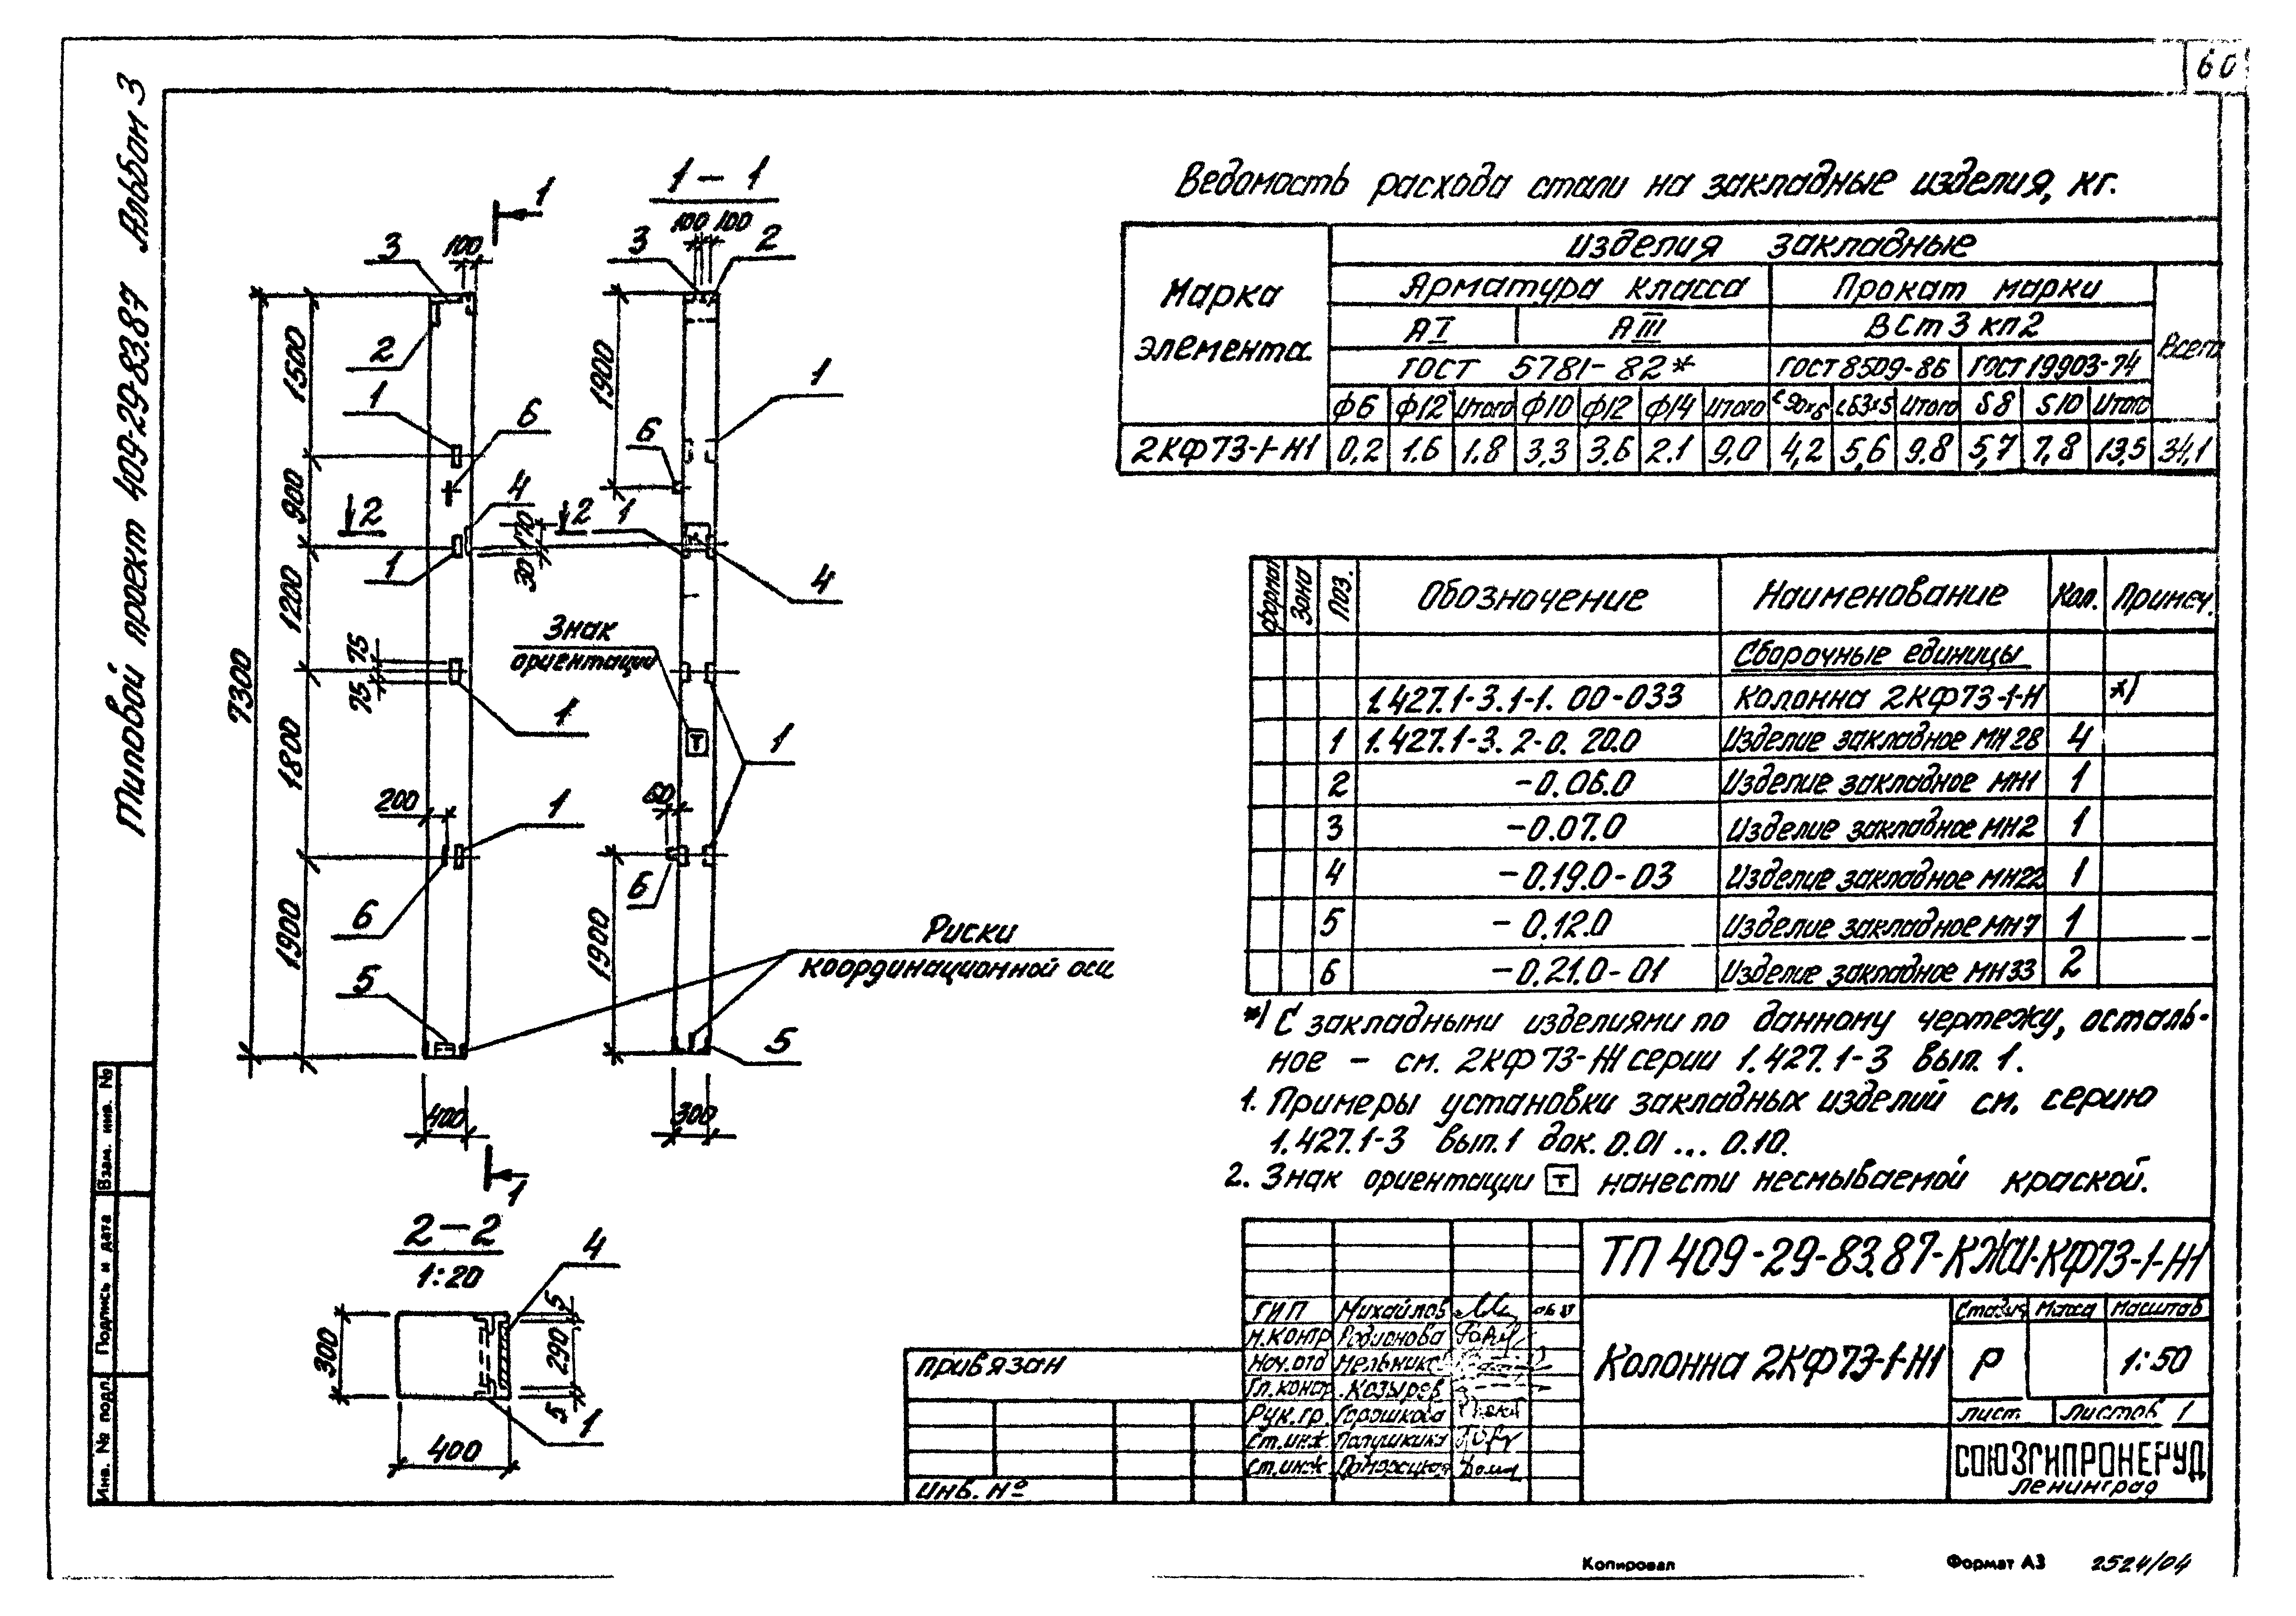 60
Типовой проект 409-29-83.87 Альбом 3
1
1-1
100 100
3
100
3
2
2
1
6
1
6
4
2
2
1
1
4
170
30
7300
1500
900
1200
1800
1900
1900
75
75
1
Знак
ориентации
Т
1
200
1
60
6
6
1900
Риски
координационной оси
5
5
400
300
1
2-2
1:20
4
300
5
290
5
1
400
Ведомость расхода стали на закладные изделия, кг.
Марка элемента
Изделия закладные
Арматура класса
Прокат марки
Всего
АI
АIII
ВСт3кп2
ГОСТ 5781-82*
ГОСТ 8509-86
ГОСТ 19903-74
ф6 ф12 Итого ф10 ф12 ф14 Итого Итого S8 S10 Итого
2КФ73-1-Н1 0,2 1.6 1.8 3,3 3,6 2.1 9,0 4,2 5,6 9.8 5,7 7,8 13,5 34,1
Формат Зона Поз. Обозначение Наименование Кол. Примеч.
Сборочные единицы
1.427.1-3.1-1.00-033 Колонна 2КФ73-1-Н *)
1 1.427.1-3.2-0.20.0 Изделие закладное МН28 4
2 -0.06.0 Изделие закладное МН1 1
3 -0.07.0 Изделие закладное МН2 1
4 -0.19.0-03 Изделие закладное МН22 1
5 -0.12.0 Изделие закладное МН7 1
6 -0.21.0-01 Изделие закладное МН33 2
*) С закладными изделиями по данному чертежу, осталь-
ное - см. 2КФ73-1-Н серии 1.427.1-3 вып. 1.
1. Примеры установки закладных изделий см. серию
1.427.1-3 вып.1 док. 0.01 ... 0.10.
2. Знак ориентации Т нанести несмываемой краской.
ТП 409-29-83.87-КЖИ-КФ73-1-Н1
ГИП Михайлов
Н.контр Родионова
Нач.отд
Гл.констр. Козырев
Рук.гр. Горошкова
Ст.инж.
Ст.инж.
Колонна 2КФ73-1-Н1
Стадия Масса Масштаб
Р 1:50
Лист Листов 1
СОЮЗГИПРОНЕРУД
Ленинград
Привязан
Инв. №
Взам. инв. №
Подпись и дата
Инв. № подл.
Копировал
Формат А3
2524/04